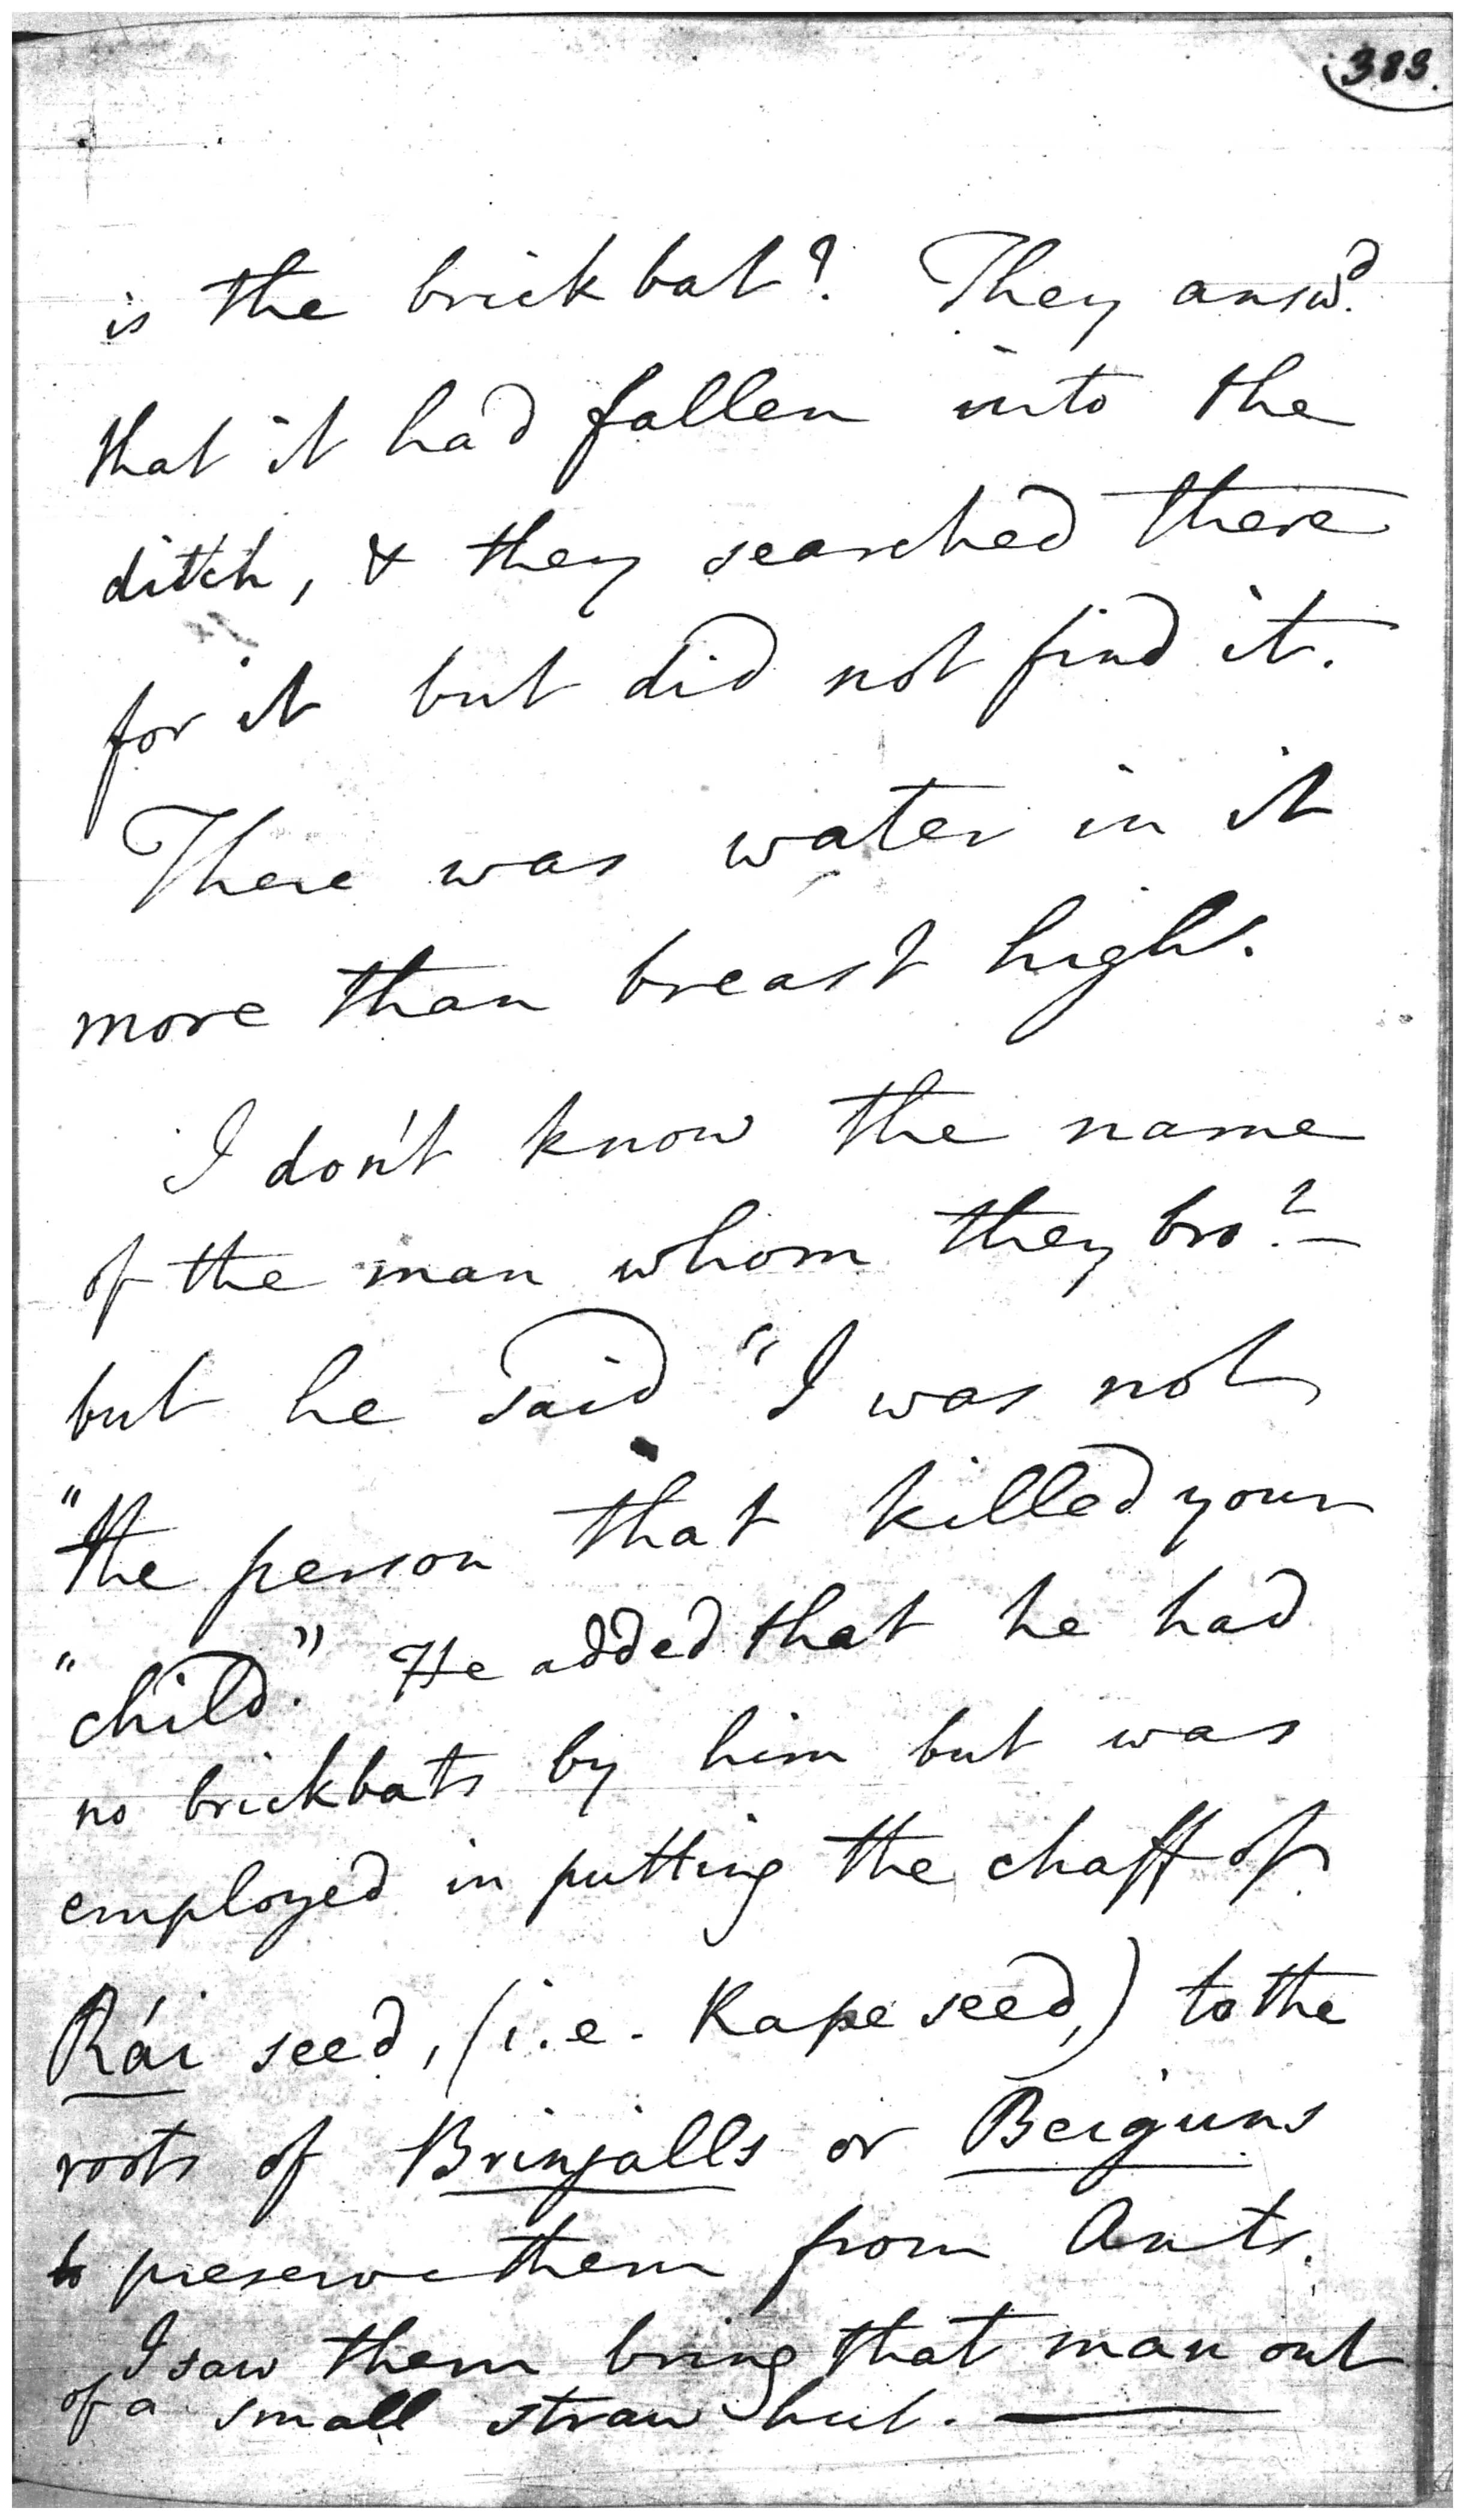 383.
is the brickbat? They answd.
that it had fallen into the
ditch, & they searched there
for it but did not find it.
There was water in it
more than breast high.
I don't know the name
of the man whom they brot. —
but he said "I was not
"the person that killed your
"child." He added that he had
no brickbats by him but was
employed in putting the chaff of
Rái seed, (i.e. Rape seed,) to the
roots of Brinjalls or Beiguns
to preserve them from Ants.
I saw them bring that man out
of a small straw hut. —